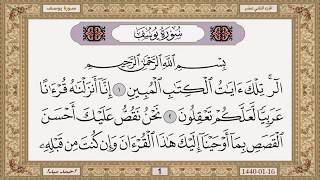 سورة يوسف
الجزء الثاني عشر
سُورَةُ يُوسُفَ
بِسْمِ اللَّهِ الرَّحْمَٰنِ الرَّحِيمِ
الٓر ۚ تِلْكَ ءَايَٰتُ ٱلْكِتَٰبِ ٱلْمُبِينِ ١ إِنَّآ أَنزَلْنَٰهُ قُرْءَٰنًا
عَرَبِيًّا لَّعَلَّكُمْ تَعْقِلُونَ ٢ نَحْنُ نَقُصُّ عَلَيْكَ أَحْسَنَ
ٱلْقَصَصِ بِمَآ أَوْحَيْنَآ إِلَيْكَ هَٰذَا ٱلْقُرْءَانَ وَإِن كُنتَ مِن قَبْلِهِۦ
1
1440-01-16